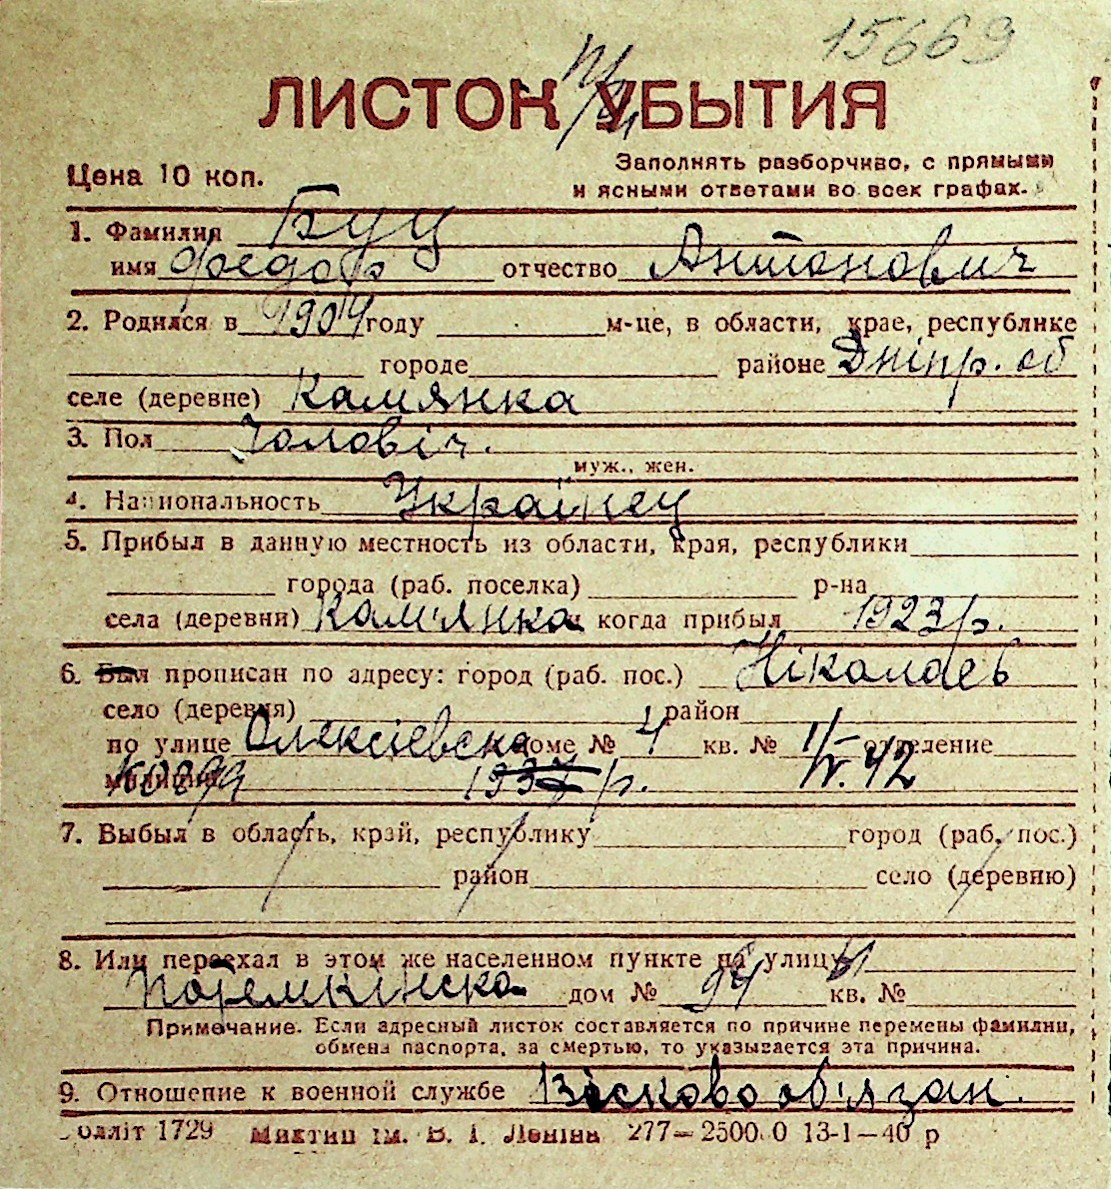 15669
ЛИСТОК УБЫТИЯ
Цена 10 коп.
Заполнять разборчиво, с прямыми
и ясными ответами во всех графах.
1. Фамилия Буц
имя Федор отчество Антонович
2. Родился в 1904 году м-це, в области, крае, республике
городе районе Дніпр. об
селе (деревне) Камянка
3. Пол Чоловіч.
муж., жен.
4. Национальность Українец
5. Прибыл в данную местность из области, края, республики
города (раб. поселка) р-на
села (деревни) Кам'янка когда прибыл 1923 р.
6. Был прописан по адресу: город (раб. пос.) Ніколаев
село (деревня) район
по улице Олексіевска доме № 4 кв. № отделение
милиции когда 1937 р. 1/IV.42
7. Выбыл в область, край, республику город (раб. пос.)
район село (деревню)
8. Или переехал в этом же населенном пункте на улицу
Потемкінска дом № 94 кв. №
Примечание. Если адресный листок составляется по причине перемены фамилии,
обмена паспорта, за смертью, то указывается эта причина.
9. Отношение к военной службе Військово об'язан.
1729 ім. В. І. Леніна 277—2500.0 13-1—40 р